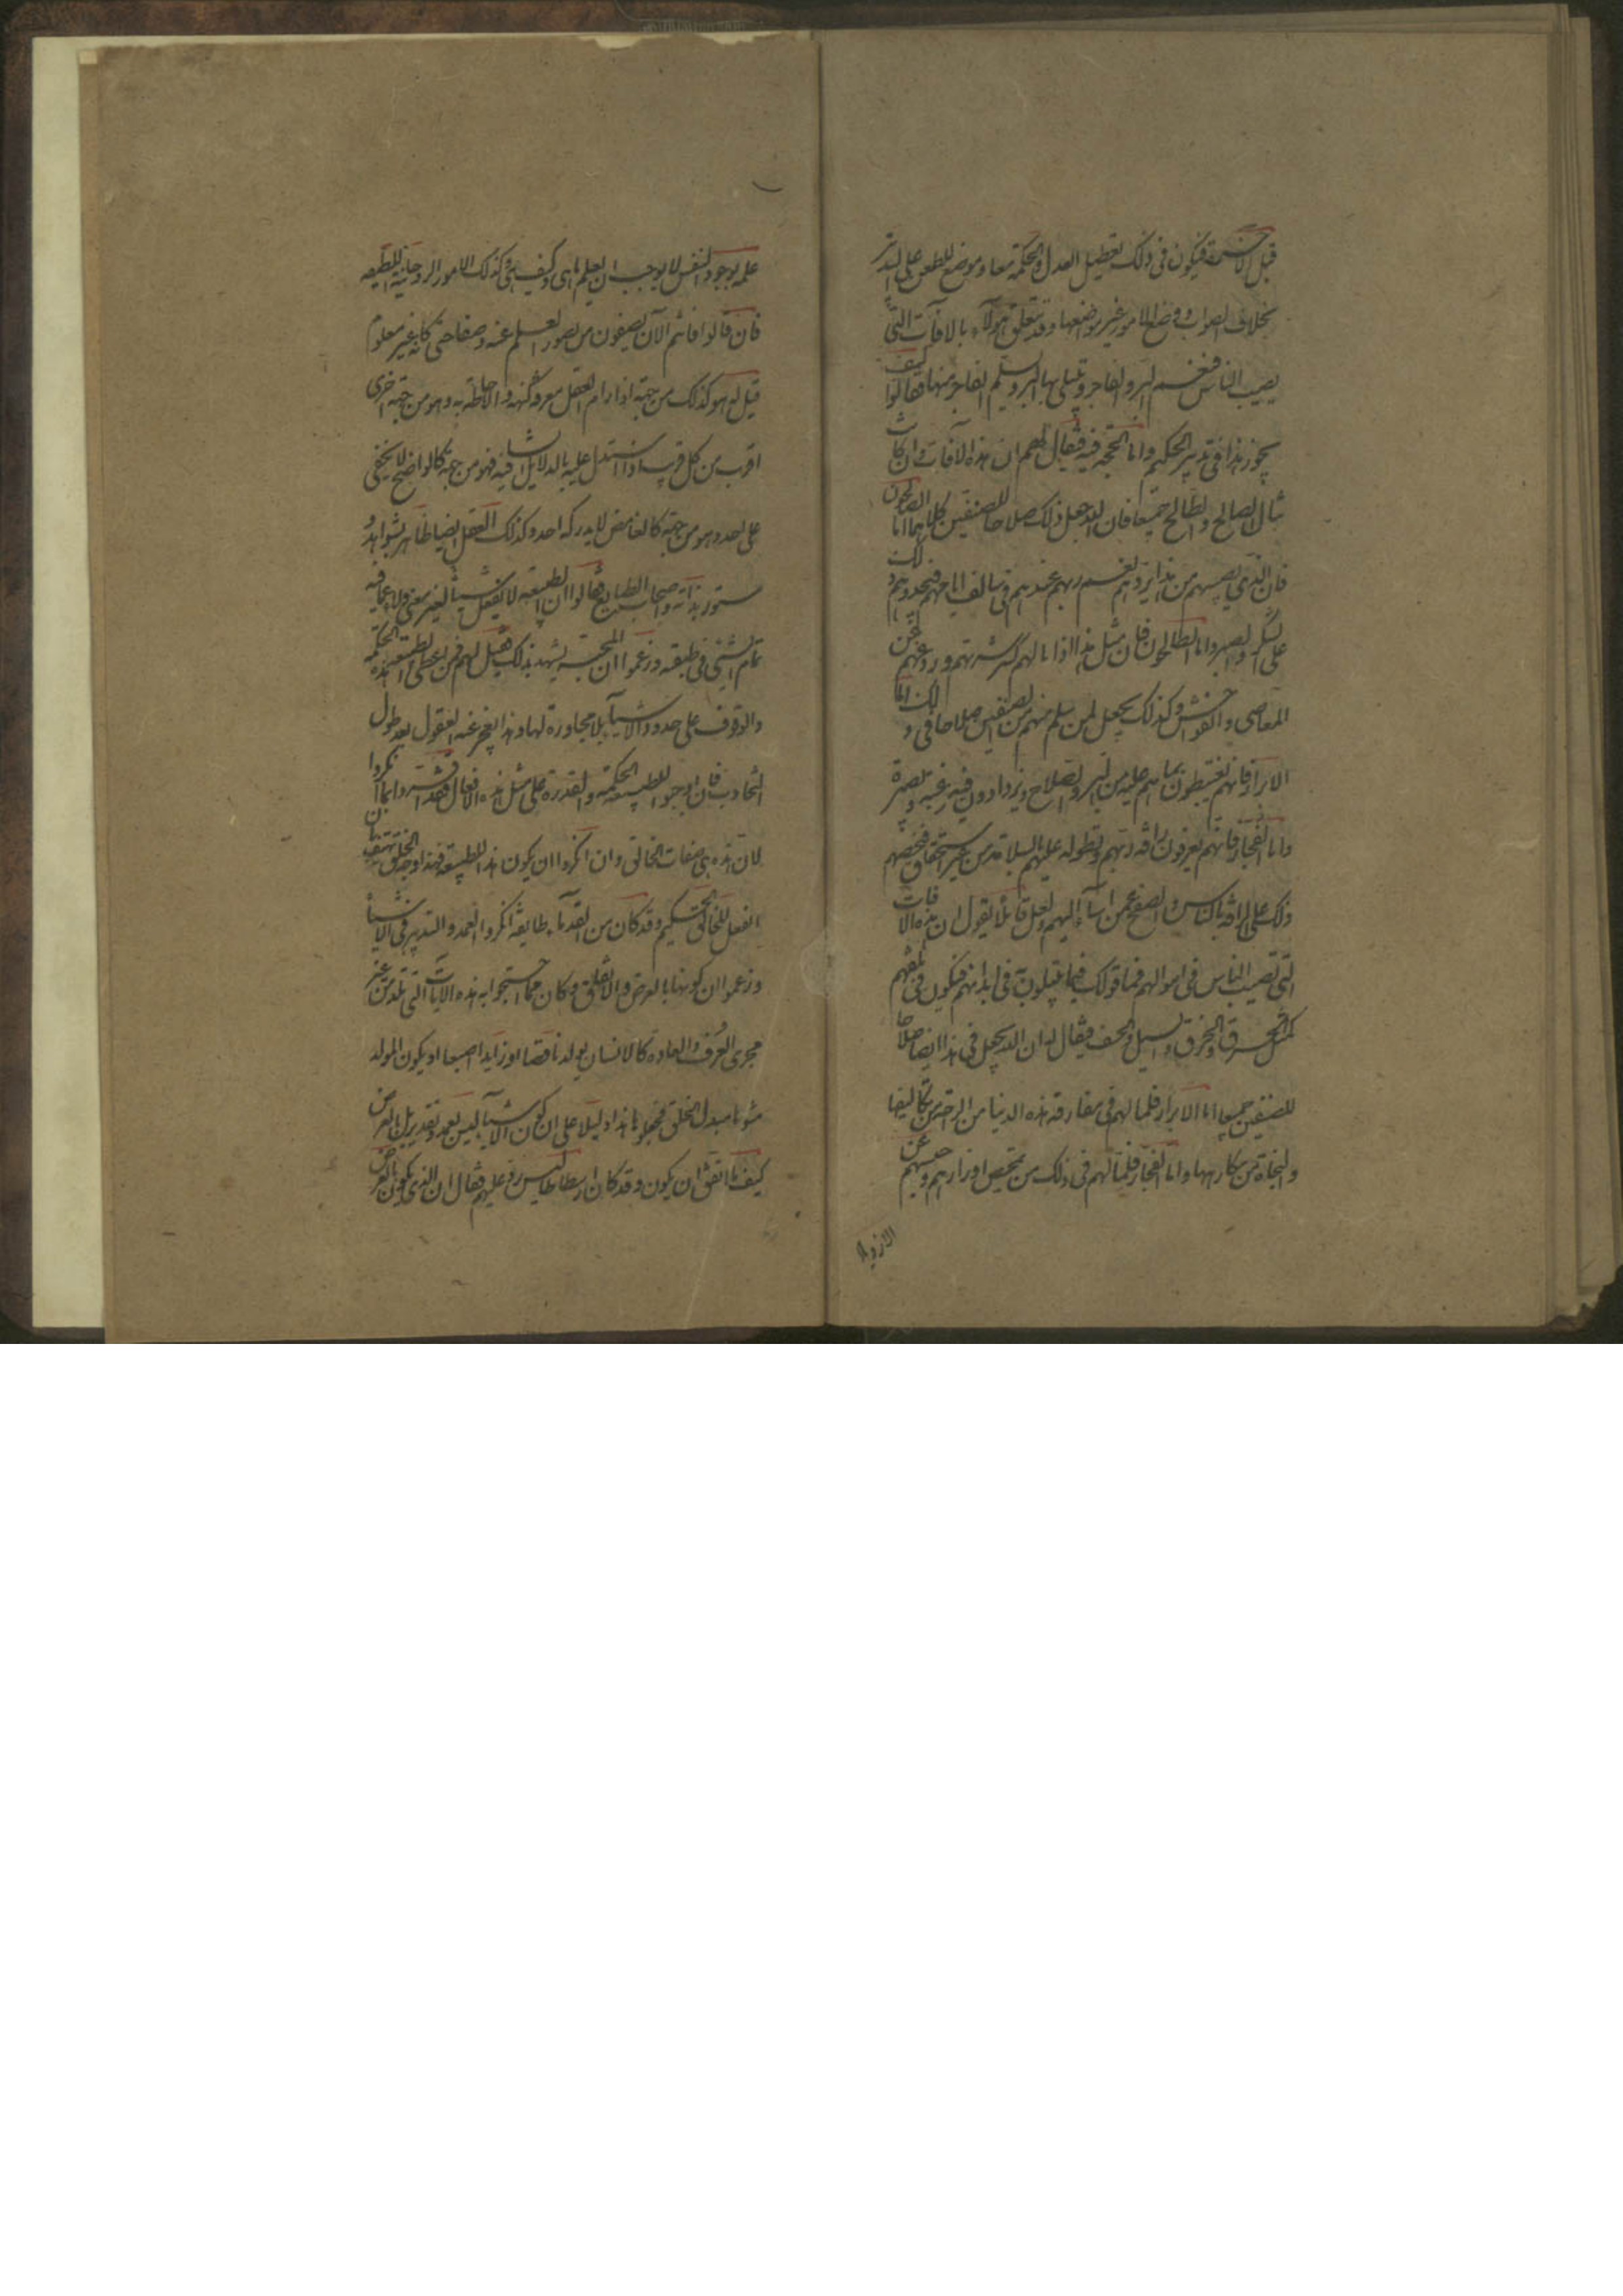 قبل الآخرة فيكون في ذلك تعطيل العدل والحكمة معا وموضع للطعن على التدبير
بخلاف الصواب ووضع الامور غير مواضعها وقد يتعلق هؤلاء بالآفات التي
يصيب الناس فتعم البر والفاجر ويبتلى بها البر ويسلم الفاجر منها فقالوا كيف
يجوز هذا في تدبير الحكيم وما الحجة فيه فيقال لهم ان هذه الآفات وان كانت
تنال الصالح والطالح جميعا فان الله جعل ذلك صلاحا للصنفين كليهما اما الصالحون
فان الذي يصيبهم من هذا يردهم نعم ربهم عندهم في سالف ايامهم فيحدوهم ذلك
على الشكر والصبر واما الطالحون فان مثل هذا اذا نالهم كسر شرتهم وردعهم عن
المعاصي والفواحش وكذلك يجعل لمن سلم منهم من الصنفين صلاحا في ذلك اما
الابرار فانهم يغتبطون بما هم عليه من البر والصلاح ويزدادون فيه رغبة وبصيرة
واما الفجار فانهم يعرفون رأفة ربهم وتطوله عليهم بالسلامة من غير استحقاق فيحضهم
ذلك على الرأفة بالناس والصفح عمن اساء اليهم ولعل قائلا يقول ان هذه الآفات
التي تصيب الناس في اموالهم فما قولك فيما يبتلون في ابدانهم فيكون فيه تلفهم
كمثل الحرق والغرق والسيل والخسف فيقال له ان الله يجعل في هذا ايضا صلاحا
للصنفين جميعا اما الابرار فلما لهم في مفارقة هذه الدنيا من الراحة من تكاليفها
والنجاة من مكارهها واما الفجار فلما لهم في ذلك من تمحيص اوزارهم وحبسهم عن
الازدياد
علمه بوجود النفس لا يوجب ان يعلم ما هي وكيف هي وكذلك الامور الروحانية اللطيفة
فان قالوا فانتم الآن تصفون من قصور العلم عنه وصفا حتى كانه غير معلوم
قيل له هو كذلك من جهة اذا رام العقل معرفة كنهه والاحاطة به وهو من جهة اخرى
اقرب من كل قريب اذا استدل عليه بالدلايل الشافية فهو من جهة كالواضح لا يخفى
على احد وهو من جهة كالغامض لا يدركه احد وكذلك العقل ايضا ظاهر بشواهده
مستور بذاته واصحاب الطبايع قالوا ان الطبيعة لا تفعل شيئا لغير معنى ولا عما فيه
تمام الشيء في طبيعته وزعموا ان المحنة يشهد بذلك فقيل لهم فمن اعطى الطبيعة هذه الحكمة
والوقوف على حدود الاشياء بلا مجاوزة لها وهذا يعجز عنه العقول بعد طول
التجارب فان اوجبوا للطبيعة الحكمة والقدرة على مثل هذه الافعال فقد اقروا بما انكروا
لان هذه هي صفات الخالق وان انكروا ان يكون هذا للطبيعة فهذا وجه الخلق يهتف بان
الفعل للخالق الحكيم وقد كان من القدماء طايفة انكروا العمد والتدبير في الاشياء
وزعموا ان كونها بالعرض والاتفاق وكان مما احتجوا به هذه الآيات التي تلد من غير
مجرى العرف والعادة كالانسان يولد ناقصا او زايدا اصبعا او يكون المولود
مشوها مبدل الخلق فجعلوا هذا دليلا على ان كون الاشياء ليس بعمد وتقدير بل بالعرض
كيف ما اتفق ان يكون وقد كان ارسطاطاليس رد عليهم فقال ان الذي يكون بالعرض